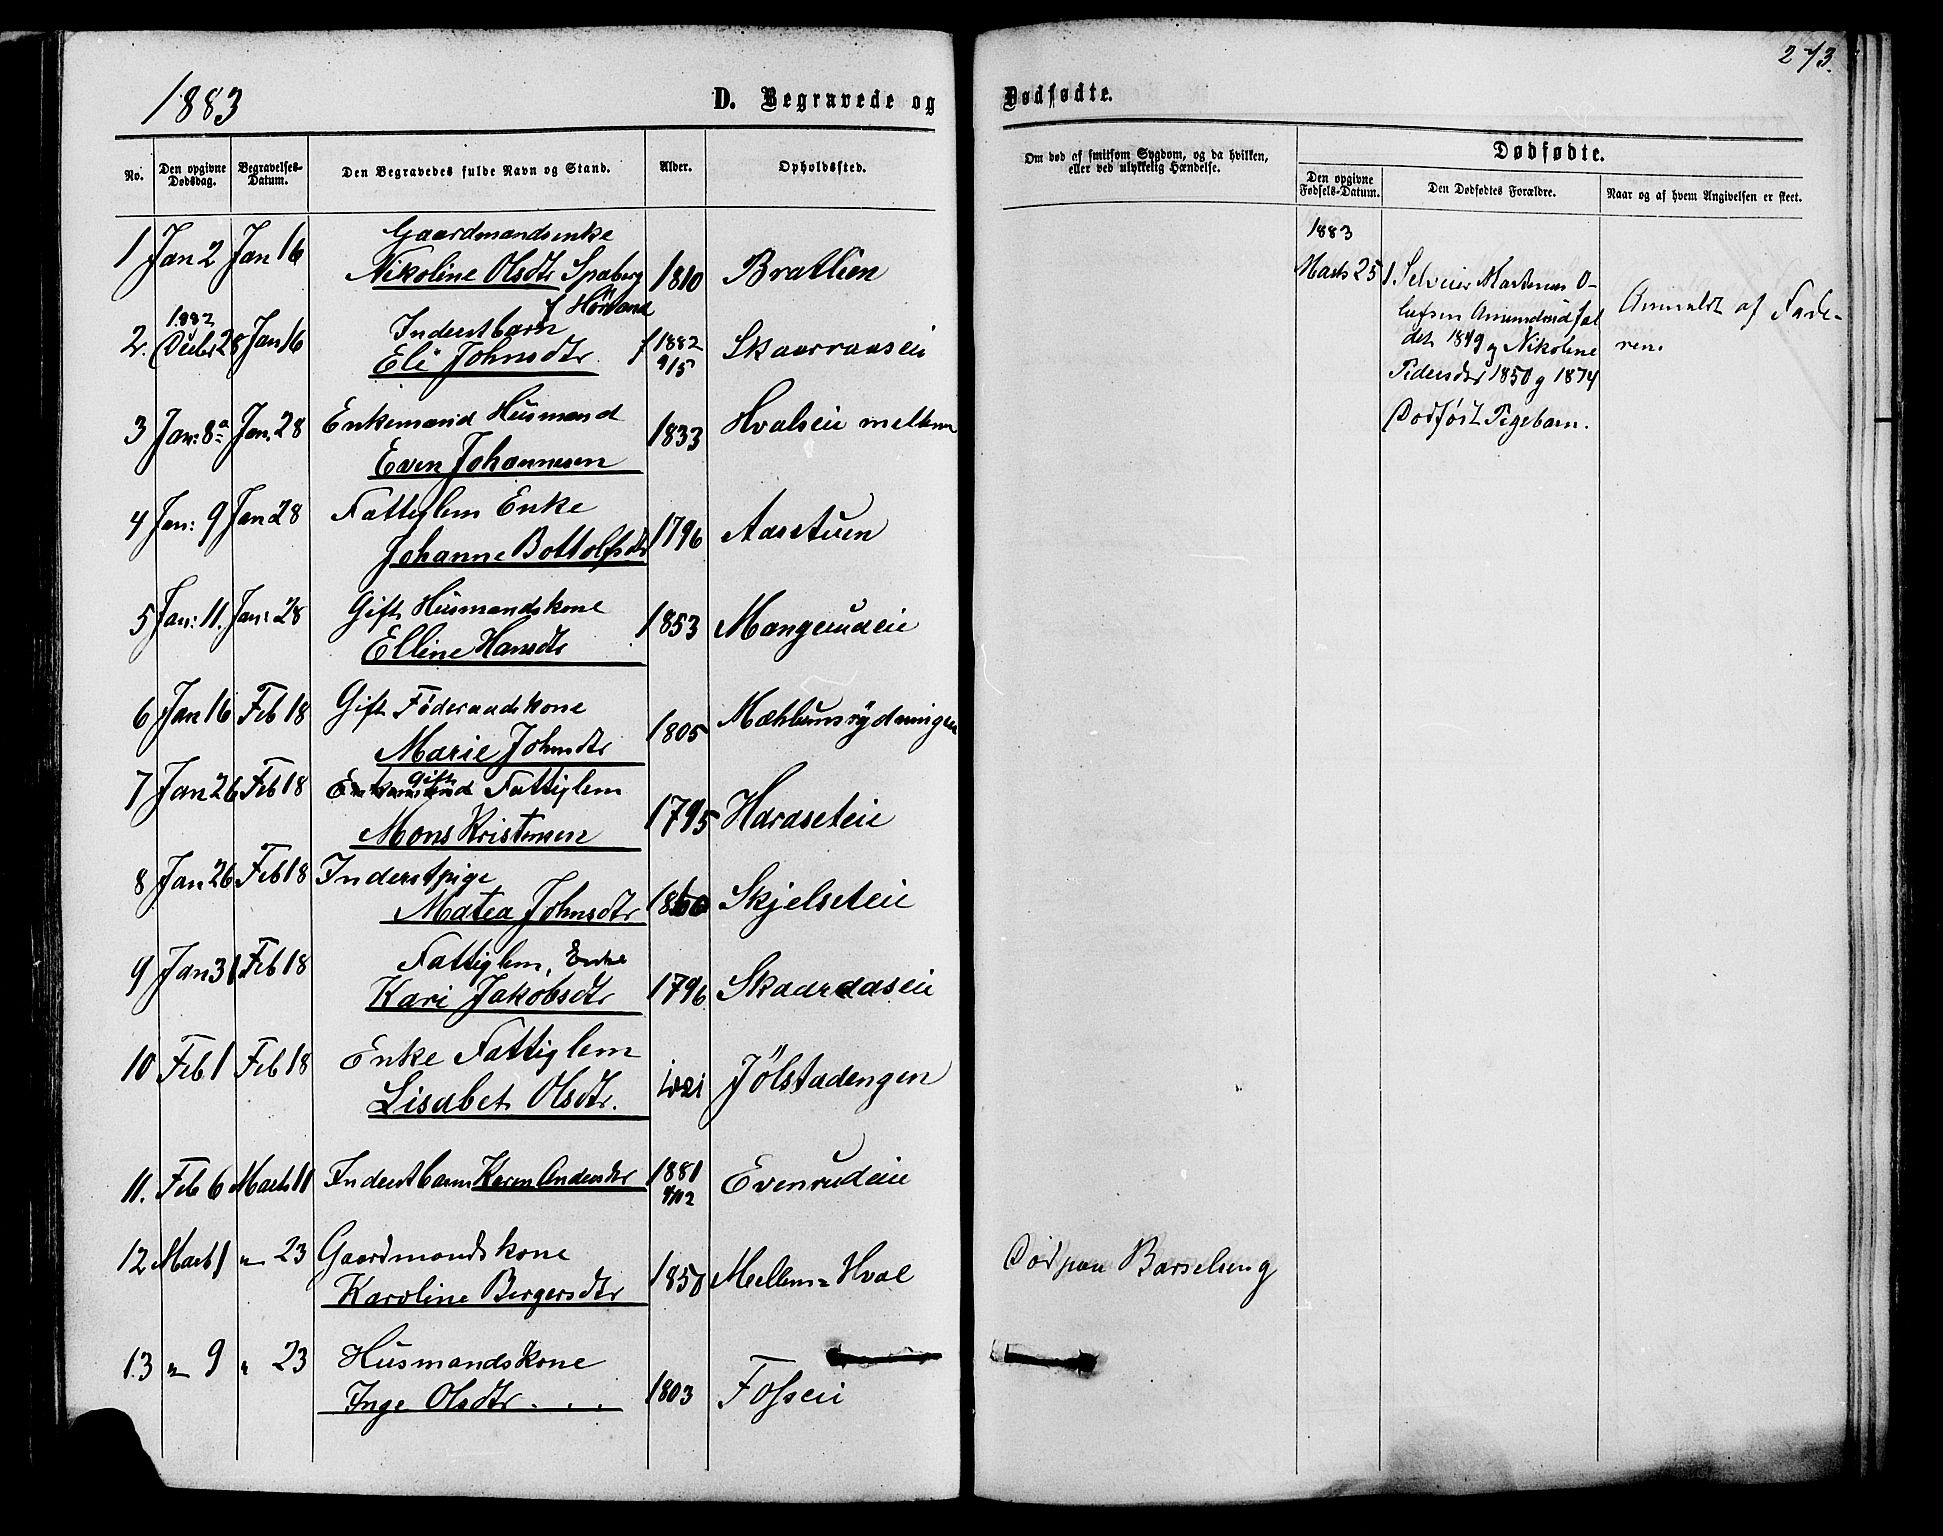 273.
1883
D. Begravede og Dødfødte.
No.
Den opgivne Dødsdag.
Begravelses-Datum.
Den Begravedes fulde Navn og Stand.
Alder.
Opholdssted.
Om død af smitsom Sygdom, og da hvilken, eller ved ulykkelig Hændelse.
Dødfødte.
Den opgivne Fødsels-Datum.
Den Dødfødtes Forældre.
Naar og af hvem Angivelsen er skeet.
Gaardmandsenke
1 Jan 2 Jan 16 Nikoline Olsdtr Spaberg 1810 Bratlien
f Hörsand
1882
2. Decbr 28 Jan 16 Inderstbarn
Eli Johnsdtr f 1882 9/5 Skaaraaseie
3 Jan: 8 Jan. 28 Enkemand Husmand
Even Johannesen 1833 Hvalseie mellem
4 Jan: 9 Jan 28 Fattiglem Enke
Johanne Bottolfsdtr 1796 Aasstuen
5 Jan: 11. Jan: 28 Gift Husmandskone
Elline Hansdtr 1853 Mangerudeie
6 Jan 16 Feb 18 Gift Föderaadskone
Marie Johnsdtr 1805 Mæhlumsrydningen
7 Jan 26 Feb 18 Enkemand Gift Fattiglem
Mons Kristensen 1795 Haraseteie
8 Jan 26 Feb 18 Inderstpige
Matea Johnsdtr 1860 Skjelseteie
9 Jan 31 Feb 18 Fattiglem, Enke
Kari Jakobsdtr 1796 Skaaraaseie
10 Feb 1 Feb 18 Enke Fattiglem
Lisabet Olsdtr. Jölstadengen
11. Feb 6 Marts 11 Inderstbarn Karen Andersdtr 1881 Evenrudeie
12 Marts 1 " 23 Gaardmandskone
Karoline Bergersdtr 1850 Mellem=Hval Död paa Barselseng
13 " 9 " 23 Husmandskone
Inge Olsdtr . . . 1803 Fosseie
1883
Marts 25 1. Selveier Martinus O-
lufsen Amundrud fal
det 1849 og Nikoline
Pedersdtr 1850 g 1874
Dödfödt Pigebarn.
Anmeldt af Fade-
ren.